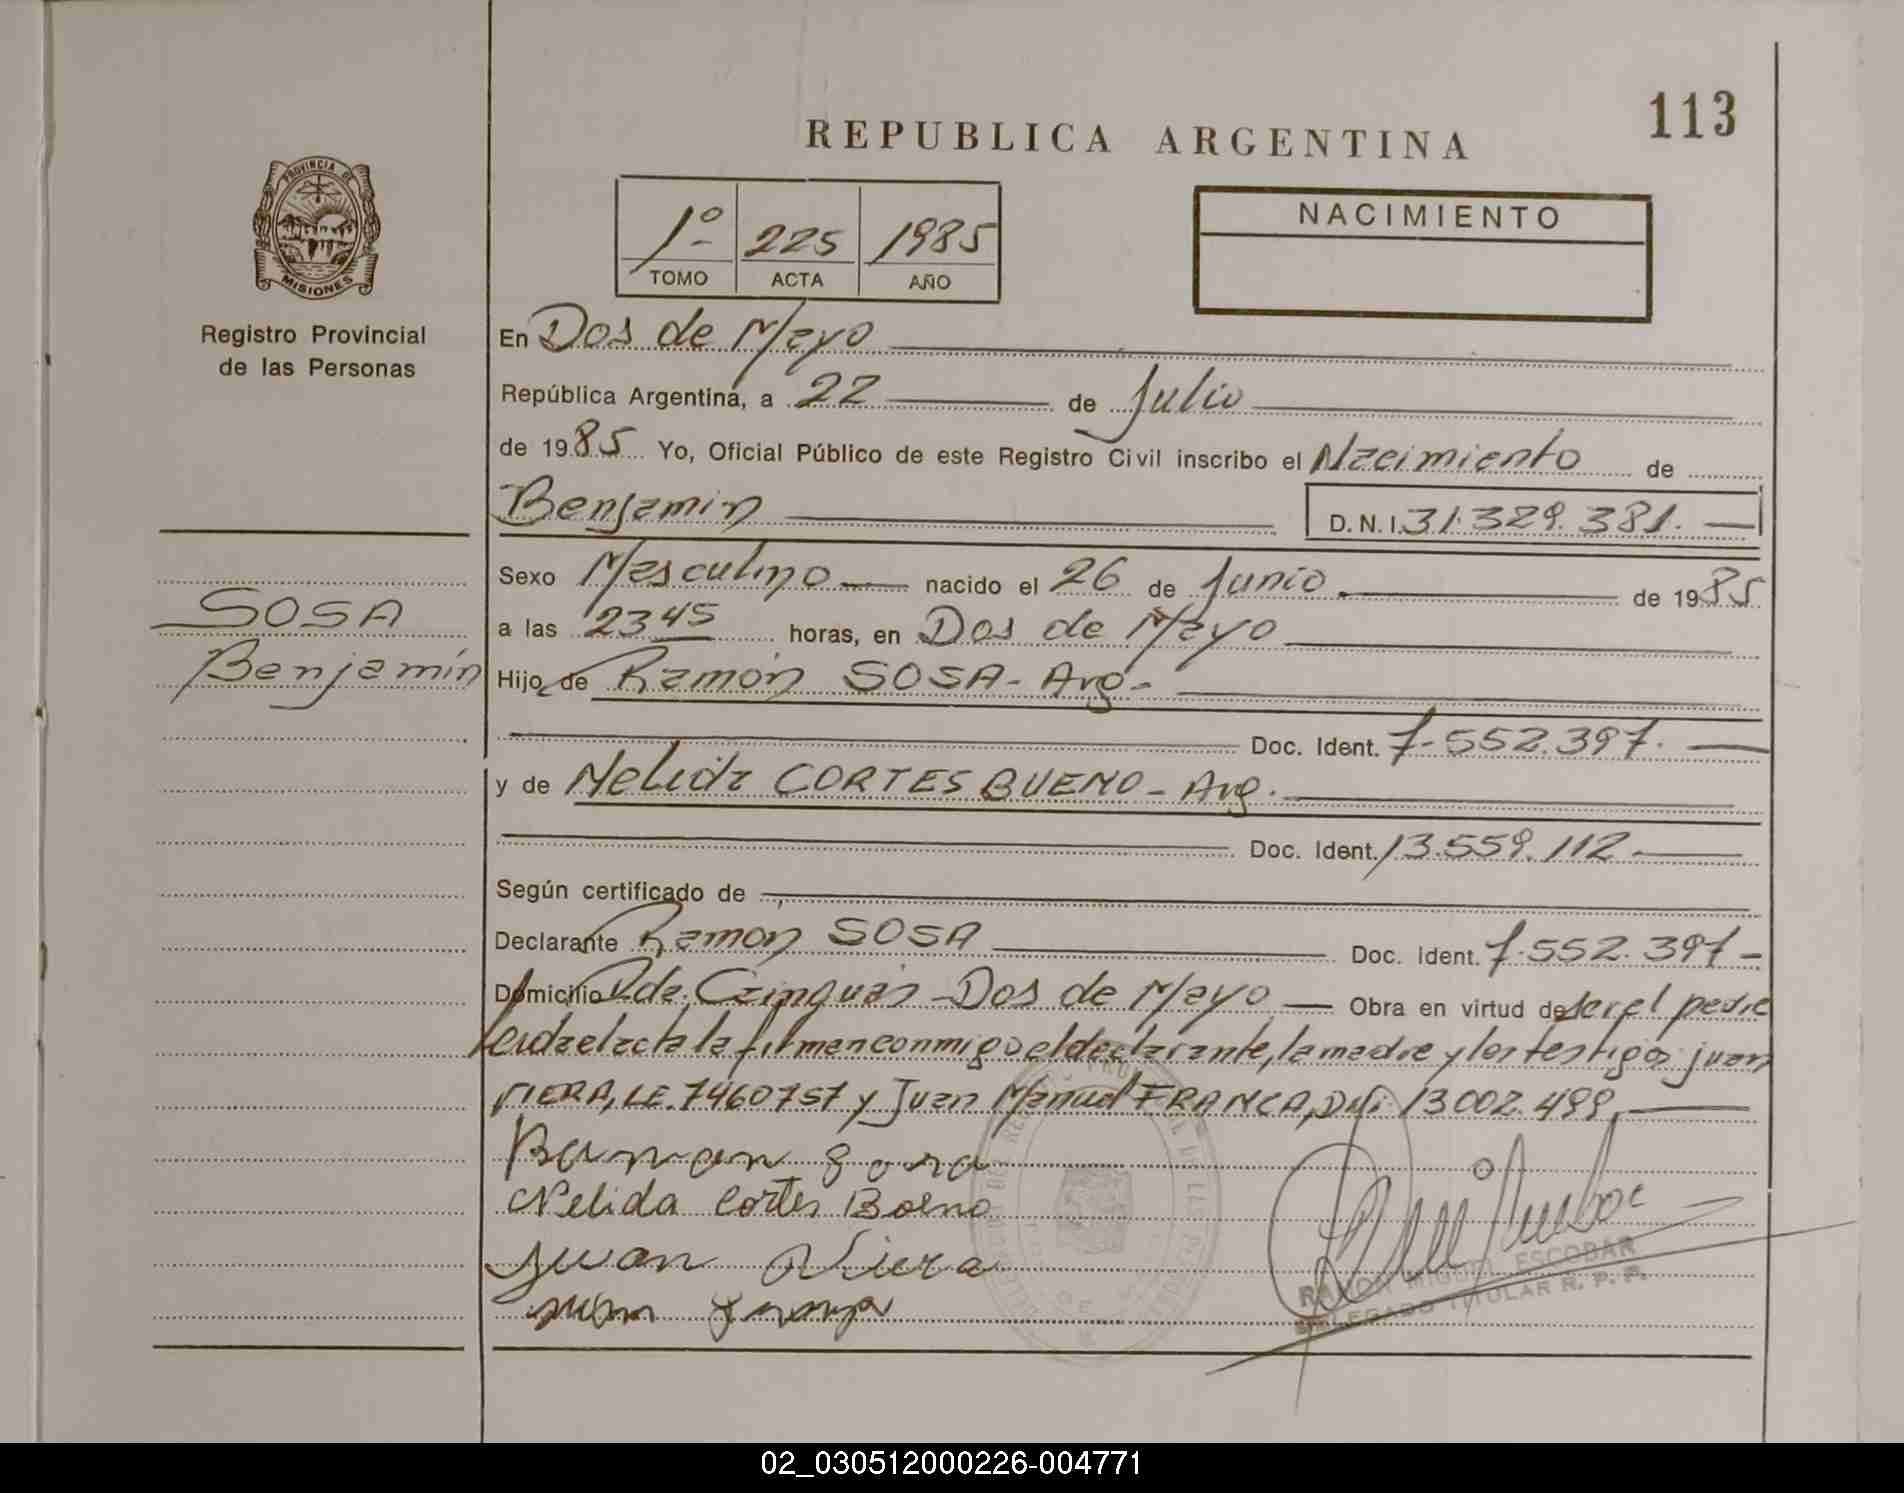 113
REPUBLICA ARGENTINA
PROVINCIA DE
MISIONES
Registro Provincial
de las Personas
1º 225 1985
TOMO ACTA AÑO
NACIMIENTO
En Dos de Mayo
República Argentina, a 22 de Julio
de 1985 Yo, Oficial Público de este Registro Civil inscribo el Nacimiento de
Benjamin D.N.I. 31.329.381.
Sexo Masculino nacido el 26 de Junio de 1985
SOSA
a las 23 45 horas, en Dos de Mayo
Benjamín
Hijo de Ramón SOSA - Arg -
Doc. Ident. 7.552.397.
y de Nelida CORTES BUENO - Arg.
Doc. Ident. 13.559.112
Según certificado de
Declarante Ramon SOSA Doc. Ident. 7.552.397
Domicilio Pda. Cainguas - Dos de Mayo Obra en virtud de ser el padre
leida el acta la firman conmigo el declarante, la madre y los testigos juan
VIERA, LE. 7460757 y Juan Manuel FRANCA, DNI. 13.002.499
Ramon Sosa
Nelida Cortes Boeno
Juan Viera
RAMON MIGUEL ESCOBAR
DELEGADO TITULAR R. P. P.
02_030512000226-004771